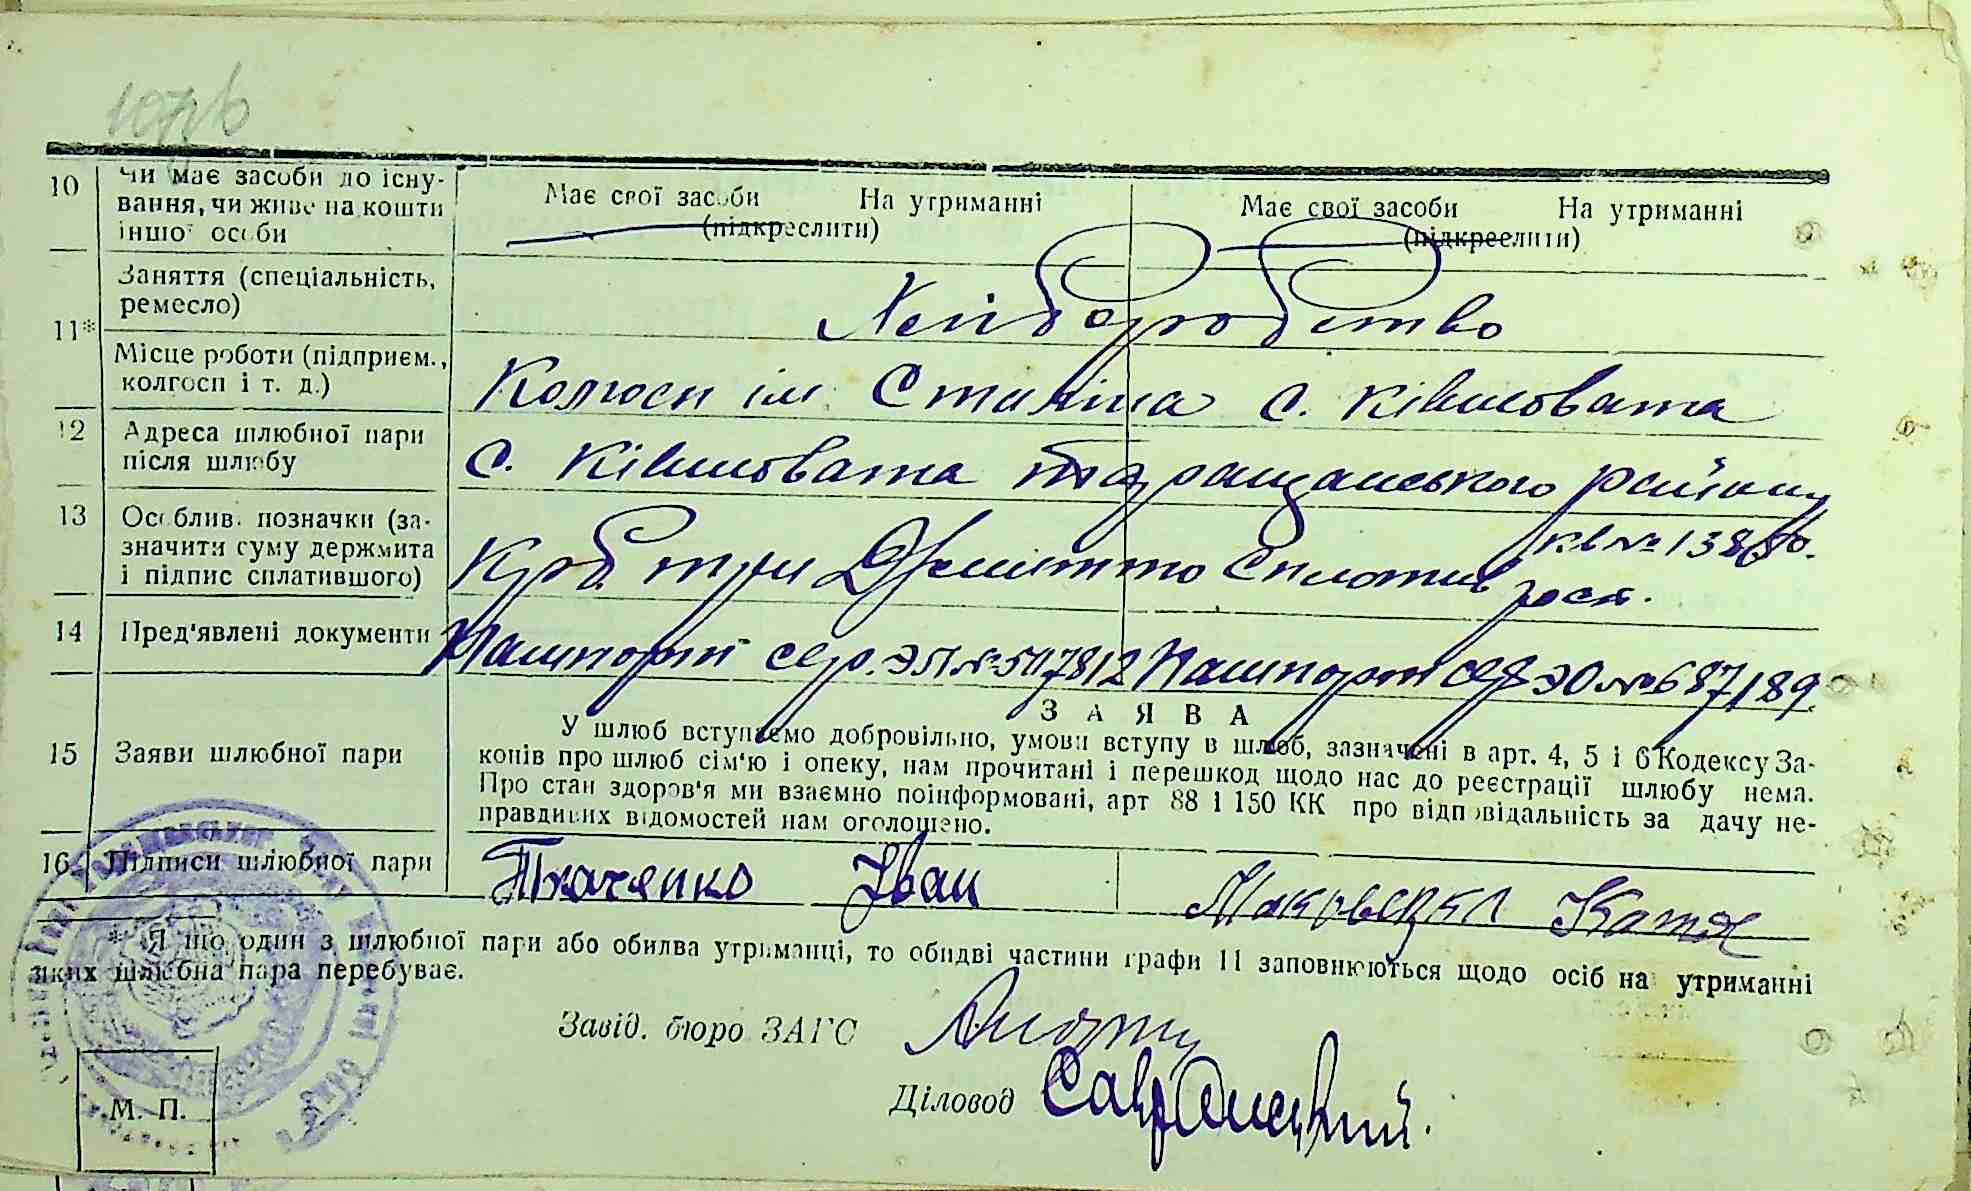 10
Чи має засоби до існування, чи живе на кошти іншої особи
Має свої засоби На утриманні
(підкреслити)
Має свої засоби На утриманні
(підкреслити)
11*
Заняття (спеціальність, ремесло)
Хліборобство
Місце роботи (підприєм., колгосп і т. д.)
Колгосп ім Сталіна с. Ківшовата
12
Адреса шлюбної пари після шлюбу
с. Ківшовата Таращанського району
13
Особлив. позначки (зазначити суму держмита і підпис сплатившого)
кв №
Крб. три Держмито сплотив
14
Пред'явлені документи
Пашпорт сер. ЭП № 517812 Пашпорт сер ЭО № 687189
15
Заяви шлюбної пари
ЗАЯВА
У шлюб вступаємо добровільно, умови вступу в шлюб, зазначені в арт. 4, 5 і 6 Кодексу За-
конів про шлюб сім'ю і опеку, нам прочитані і перешкод щодо нас до реєстрації шлюбу нема.
Про стан здоров'я ми взаємно поінформовані, арт 88 і 150 КК про відповідальність за дачу не-
правдивих відомостей нам оголошено.
16
Підписи шлюбної пари
Ткаченко Іван
Маковецка Катя
* Якщо один з шлюбної пари або обидва утриманці, то обидві частини графи 11 заповнюються щодо осіб на утриманні
яких шлюбна пара перебуває.
Завід. бюро ЗАГС
Діловод
М. П.